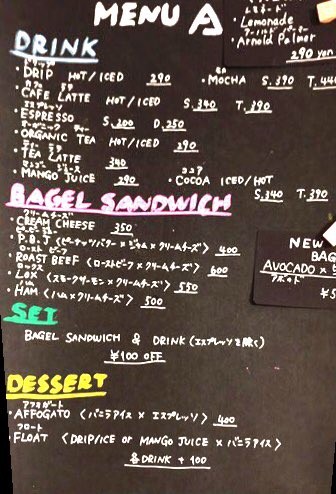 MENU A
・Lemonade
・Arnold Palmer
290 yen
DRINK
・DRIP HOT/ICED 290
・MOCHA S.390 T.44
・CAFE LATTE HOT/ICED S.340 T.390
・ESPRESSO S.200 D.250
・ORGANIC TEA HOT/ICED 290
・TEA LATTE 340
・MANGO JUICE 290
ココア
・COCOA ICED/HOT
S.340 T.390
BAGEL SANDWICH
クリームチーズ
・CREAM CHEESE 350
・P.B.J 〈ピーナッツバター×ジャム×クリームチーズ〉 400
ロースト ビーフ
・ROAST BEEF 〈ローストビーフ×クリームチーズ〉 600
ロックス
・LOX 〈スモークサーモン×クリームチーズ〉 550
・HAM 〈ハム×クリームチーズ〉 500
NEW
BAG
AVOCADO ×
アボカド
SET
BAGEL SANDWICH & DRINK (エスプレッソを除く)
¥100 OFF
DESSERT
アフォガート
・AFFOGATO 〈バニラアイス × エスプレッソ〉 400
フロート
・FLOAT 〈DRIP/ICE or MANGO JUICE × バニラアイス〉
各DRINK + 100